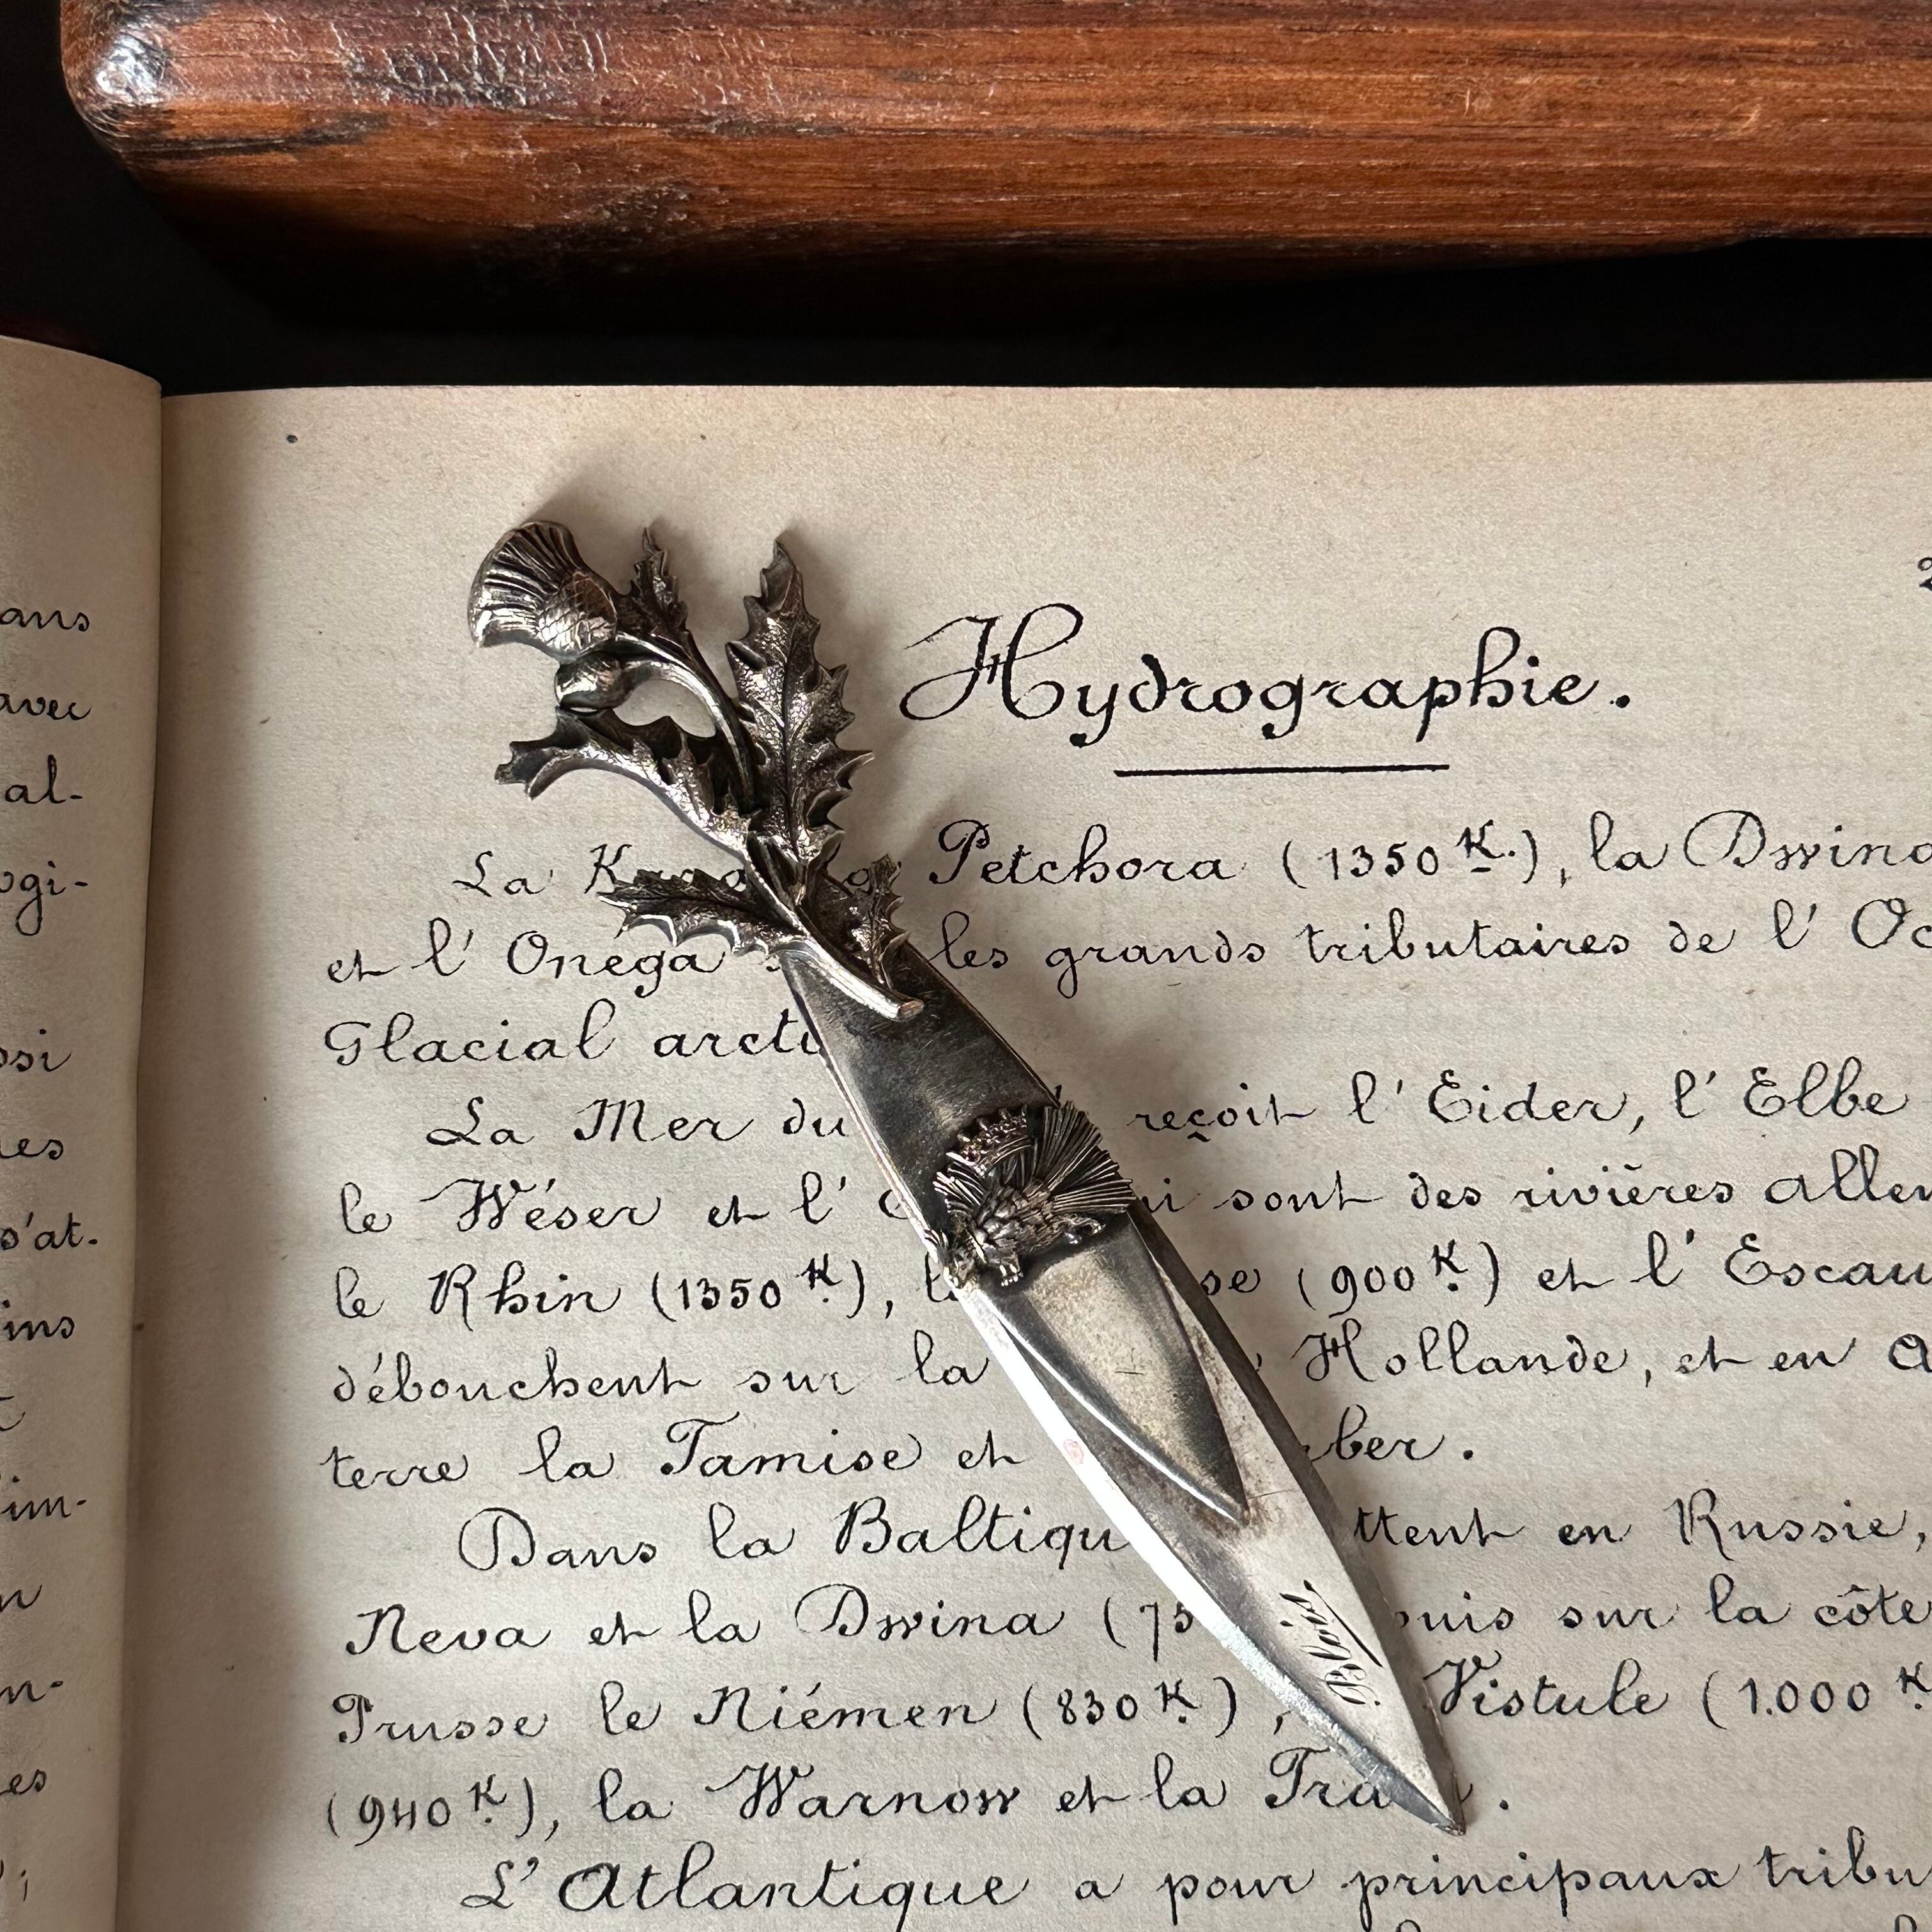 ans
avec
al-
ogi-
ssi
es
s'at-
ins
im-
n-
es
Hydrographie.
La Petchora (1350 K.), la Dwina
et l' Onéga les grands tributaires de l' Oc
Glacial arcti
La Mer du reçoit l' Eider, l' Elbe
le Wéser et l' sont des rivières allem
le Rhin (1350 K.), se (900 K.) et l' Escau
débouchent sur la Hollande, et en A
terre la Tamise et ber.
Dans la Baltiqu ttent en Russie,
Neva et la Dwina (75 puis sur la côte
Prusse le Niémen (830 K.), Vistule (1.000 K.
(940 K.), la Warnow et la Tra .
L' Atlantique a pour principaux tribu